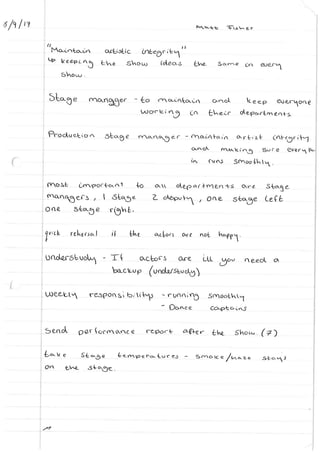 5/9/19
Matt Fisher
"Maintain artistic integrity"
up keeping the show ideas the same in every
show.
Stage manager - to maintain and keep everyone
working in their departments
Production stage manager - maintain artist integrity
and making sure every
in runs smoothly.
most important to all departments are stage
managers, 1 stage 2 deputy, one stage left
one stage right.
rehersal if the actors are not happy.
understudy - If actors are ill you need a
backup (understudy)
weekly responsibilitys - running smoothly
- Dance captains
Send performance report after the show. (7)
take stage temperatures - smoke/haze stays
on the stage.